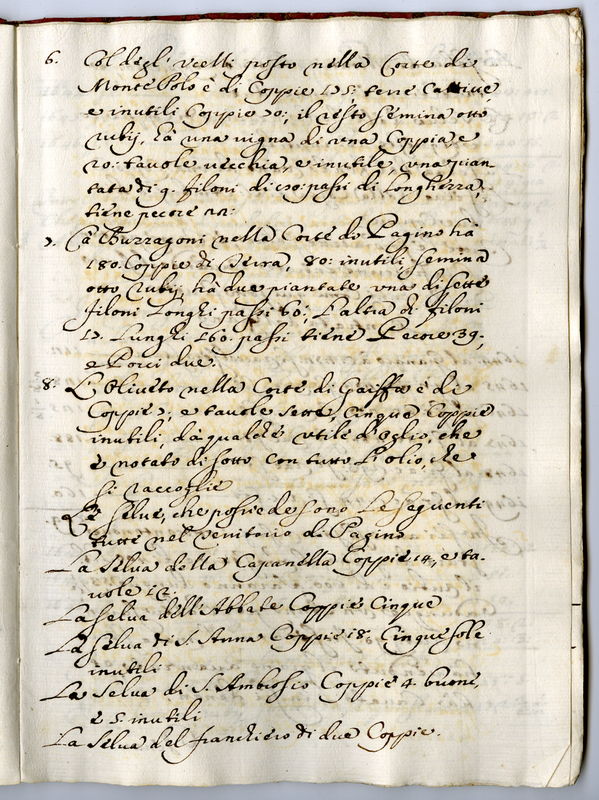 6. Col degl' Ucelli posto nella Corte di
Monte Polo è di Coppie 175: terre Cattiue,
e inutili Coppie 70:, il resto semina otto
rubij, hà una vigna di vna Coppia, e
20: tauole vecchia, e inutile, vna pian-
tata di 9. filoni di 120: passi di longhezza,
tiene pecore 22:
7. Cà Burragoni nella Corte do Pagino hà
180: Coppie di Terra, 80: inutili, semina
otto rubij, hà due piantate vna di sette
filoni Longhi passi 60; L'altra di filoni
17. Lunghi 160: passi tiene Pecore 39.
e Porci due.
8. L'Oliueto nella Corte di Gaiffa è di
Coppie 7, e tauole sette, Cinque Coppie
inutili, dà qualche vtile d'oglio, che
è notato di sotto con tutto L'olio, che
si raccoglie
Le Selue, che possiede sono Le seguenti
tutte nel Territorio di Pagino.
La Selua della Capanella Coppie 14, e ta-
uole 12.
La Selua dell'Abbate Coppie Cinque
La Selua di S. Anna Coppie 18. Cinque sole
inutili
La Selua di S. Ambrosio Coppie 4. buone,
e 5. inutili
La Selua del franchiero di due Coppie.